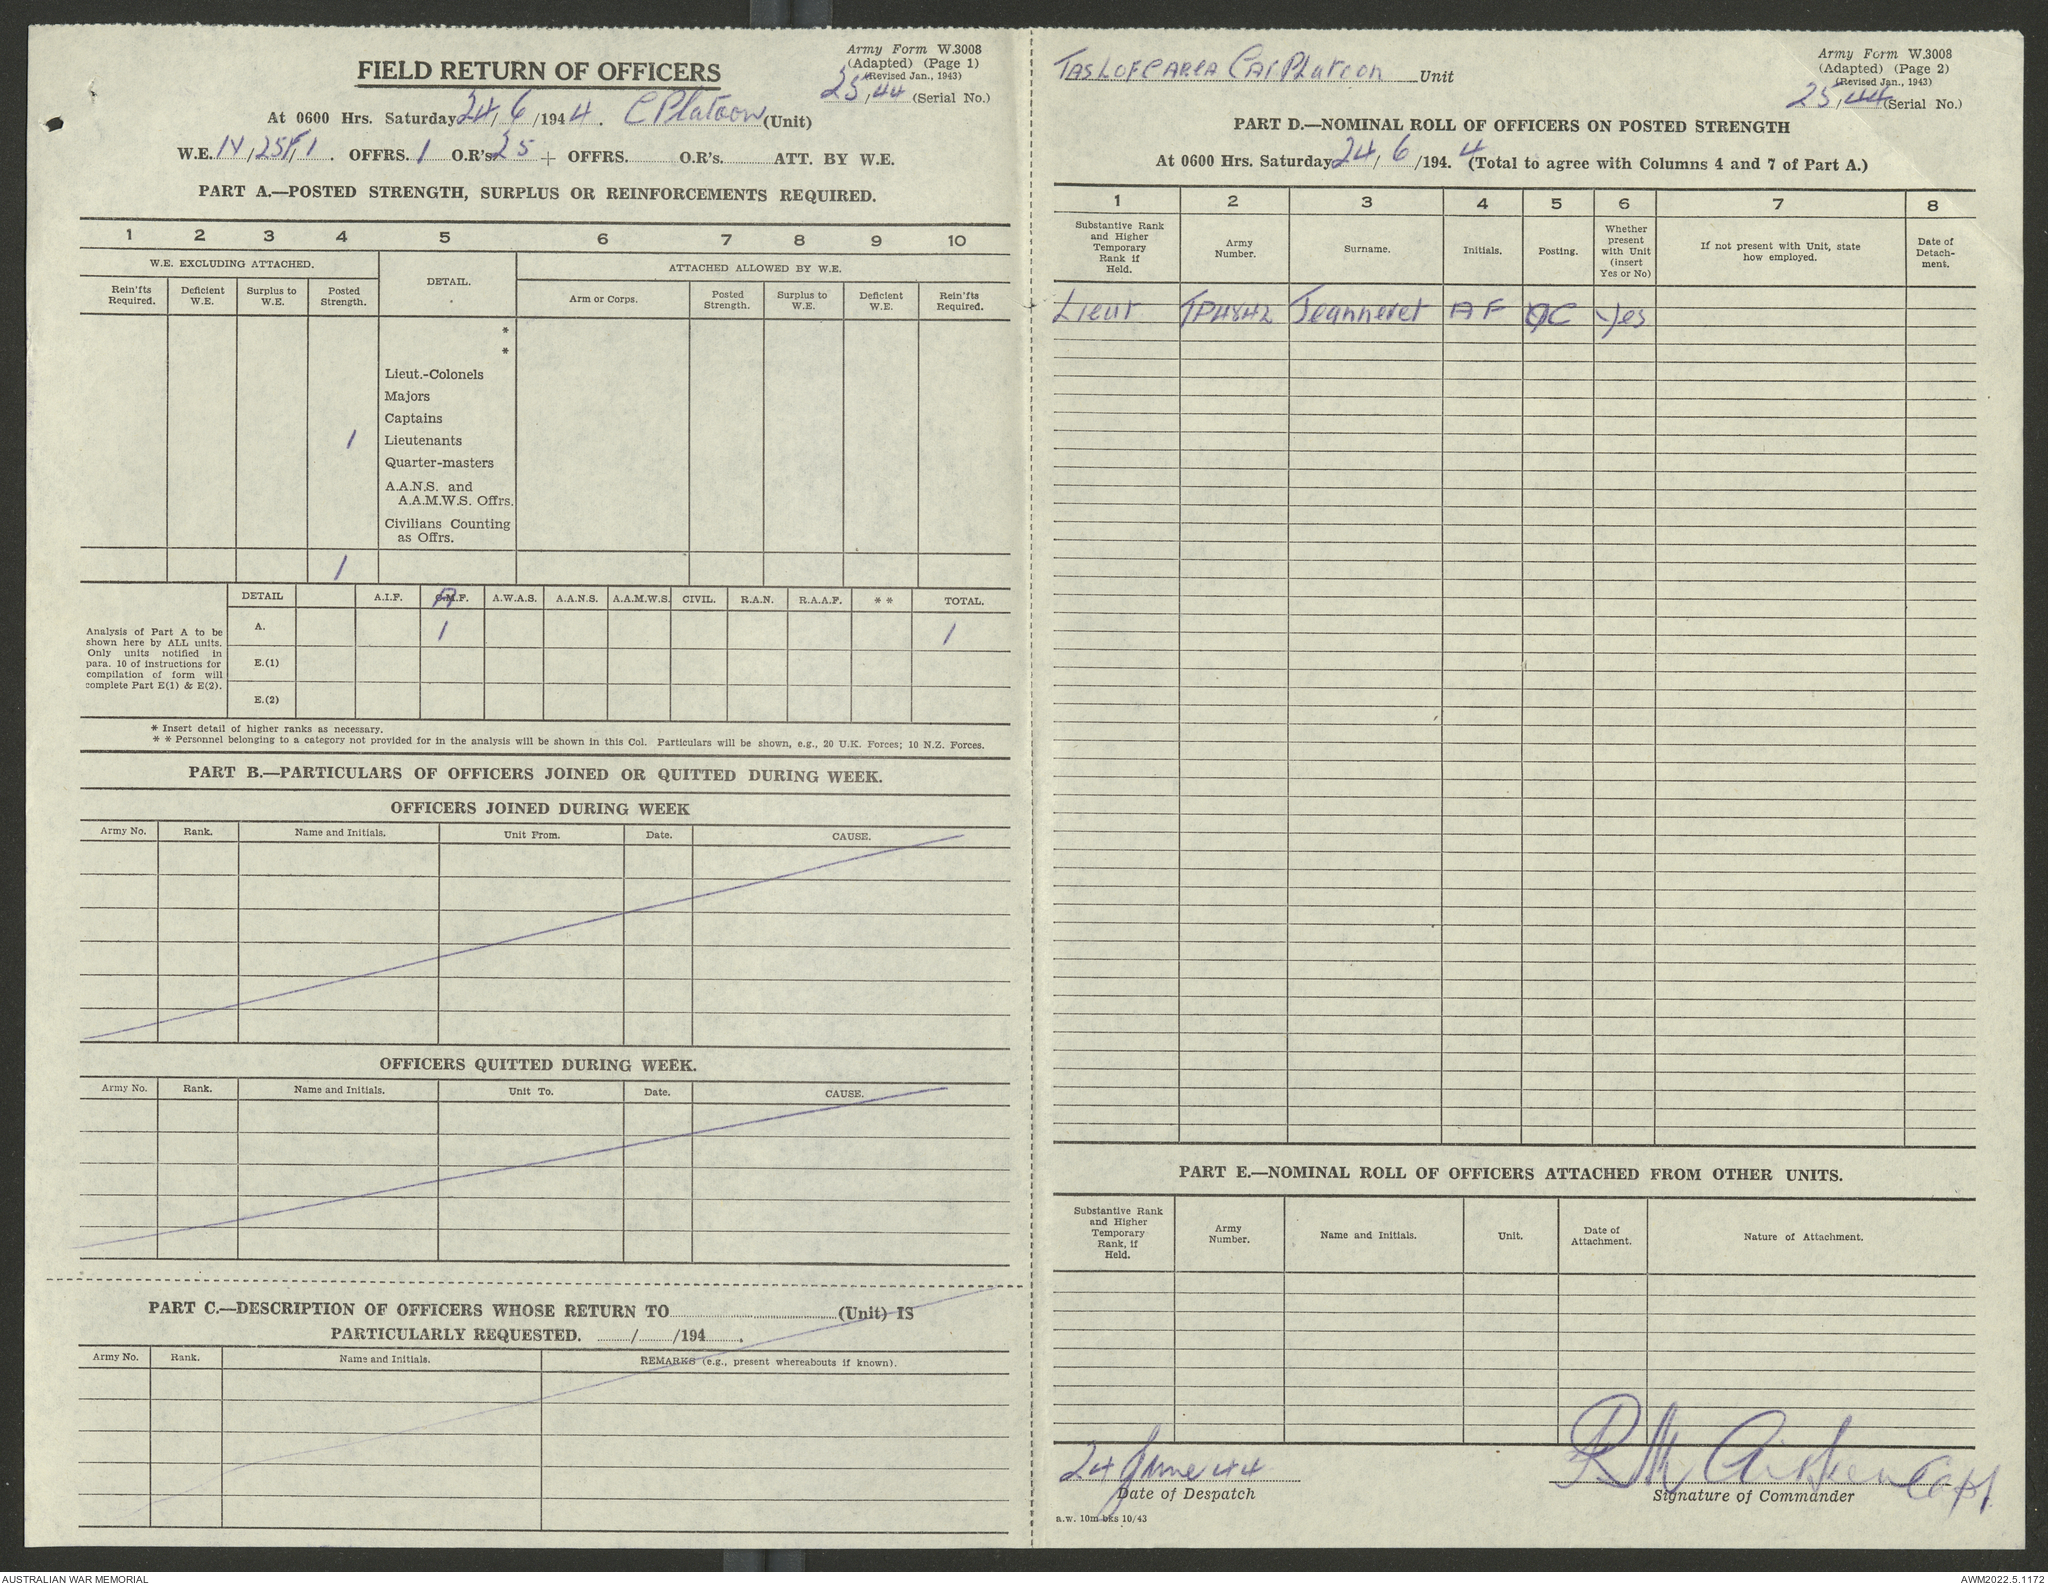 FIELD RETURN OF OFFICERS
Army Form W.3008
(Adapted) (Page 1)
(Revised Jan., 1943)
25/44 (Serial No.)
At 0600 Hrs. Saturday 24/6/1944. C Platoon (Unit)
W.E. OFFRS. 1 O.R's 25 + OFFRS. O.R's. ATT. BY W.E.
PART A.—POSTED STRENGTH, SURPLUS OR REINFORCEMENTS REQUIRED.
1 2 3 4 5 6 7 8 9 10
W.E. EXCLUDING ATTACHED. DETAIL. ATTACHED ALLOWED BY W.E.
Rein'fts Required. Deficient W.E. Surplus to W.E. Posted Strength. Arm or Corps. Posted Strength. Surplus to W.E. Deficient W.E. Rein'fts Required.
*
*
Lieut.-Colonels
Majors
Captains
1 Lieutenants
Quarter-masters
A.A.N.S. and
A.A.M.W.S. Offrs.
Civilians Counting
as Offrs.
1
DETAIL A.I.F. C.M.F. A.W.A.S. A.A.N.S. A.A.M.W.S. CIVIL. R.A.N. R.A.A.F. * * TOTAL.
A. 1 1
E.(1)
E.(2)
Analysis of Part A to be
shown here by ALL units.
Only units notified in
para. 10 of instructions for
compilation of form will
complete Part E(1) & E(2).
* Insert detail of higher ranks as necessary.
* * Personnel belonging to a category not provided for in the analysis will be shown in this Col. Particulars will be shown, e.g., 20 U.K. Forces; 10 N.Z. Forces.
PART B.—PARTICULARS OF OFFICERS JOINED OR QUITTED DURING WEEK.
OFFICERS JOINED DURING WEEK
Army No. Rank. Name and Initials. Unit From. Date. CAUSE.
OFFICERS QUITTED DURING WEEK.
Army No. Rank. Name and Initials. Unit To. Date. CAUSE.
PART C.—DESCRIPTION OF OFFICERS WHOSE RETURN TO (Unit) IS
PARTICULARLY REQUESTED. / /194 .
Army No. Rank. Name and Initials. REMARKS (e.g., present whereabouts if known).
Tas L of C Area Car Platoon Unit
Army Form W.3008
(Adapted) (Page 2)
(Revised Jan., 1943)
25/44 (Serial No.)
PART D.—NOMINAL ROLL OF OFFICERS ON POSTED STRENGTH
At 0600 Hrs. Saturday 24/6/194.4 (Total to agree with Columns 4 and 7 of Part A.)
1 2 3 4 5 6 7 8
Substantive Rank and Higher Temporary Rank if Held. Army Number. Surname. Initials. Posting. Whether present with Unit (insert Yes or No) If not present with Unit, state how employed. Date of Detach-ment.
Lieut Jeanneret A F OC Yes
PART E.—NOMINAL ROLL OF OFFICERS ATTACHED FROM OTHER UNITS.
Substantive Rank and Higher Temporary Rank, if Held. Army Number. Name and Initials. Unit. Date of Attachment. Nature of Attachment.
24 June 44
Date of Despatch
Capt.
Signature of Commander
a.w. 10m bks 10/43
AUSTRALIAN WAR MEMORIAL
AWM2022.5.1172